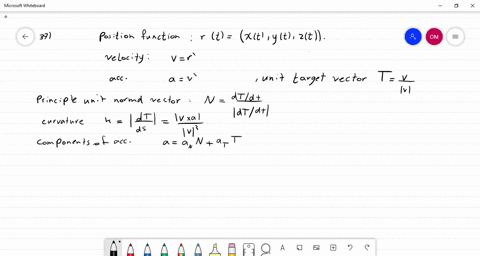 Microsoft Whiteboard
39) Position function : r (t) = (x(t), y(t), z(t)).
OM
velocity: v = r'
acc. a = v' , unit target vector T = v/|v|
Principle unit normal vector : N = (dT/dt)/|dT/dt|
curvature κ = |dT/ds| = |v×a|/|v|³
components of acc. a = aₙ N + a_T T